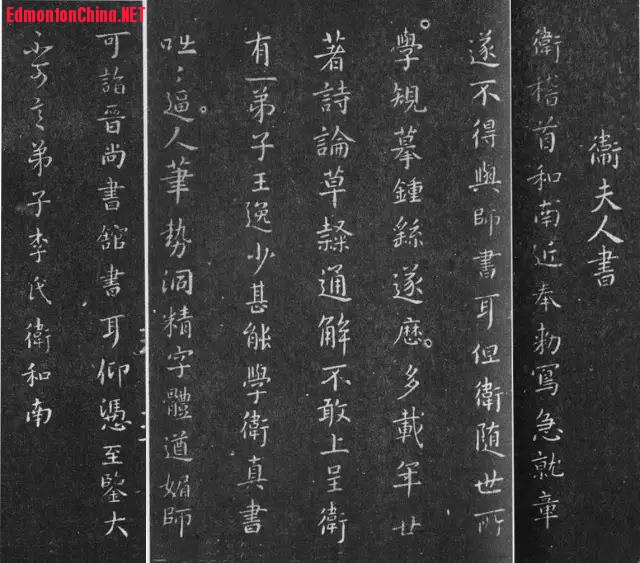 EdmontonChina.NET
衛夫人書
衛稽首和南近奉勅寫急就章
遂不得與師書耳但衛隨世所
學規摹鍾繇遂歷多載年廿
著詩論草隸通解不敢上呈衛
有一弟子王逸少甚能學衛真書
咄〻逼人筆勢洞精字體遒媚師
可詣晉尚書館書耳仰憑至鑒大
不可言弟子李氏衛和南